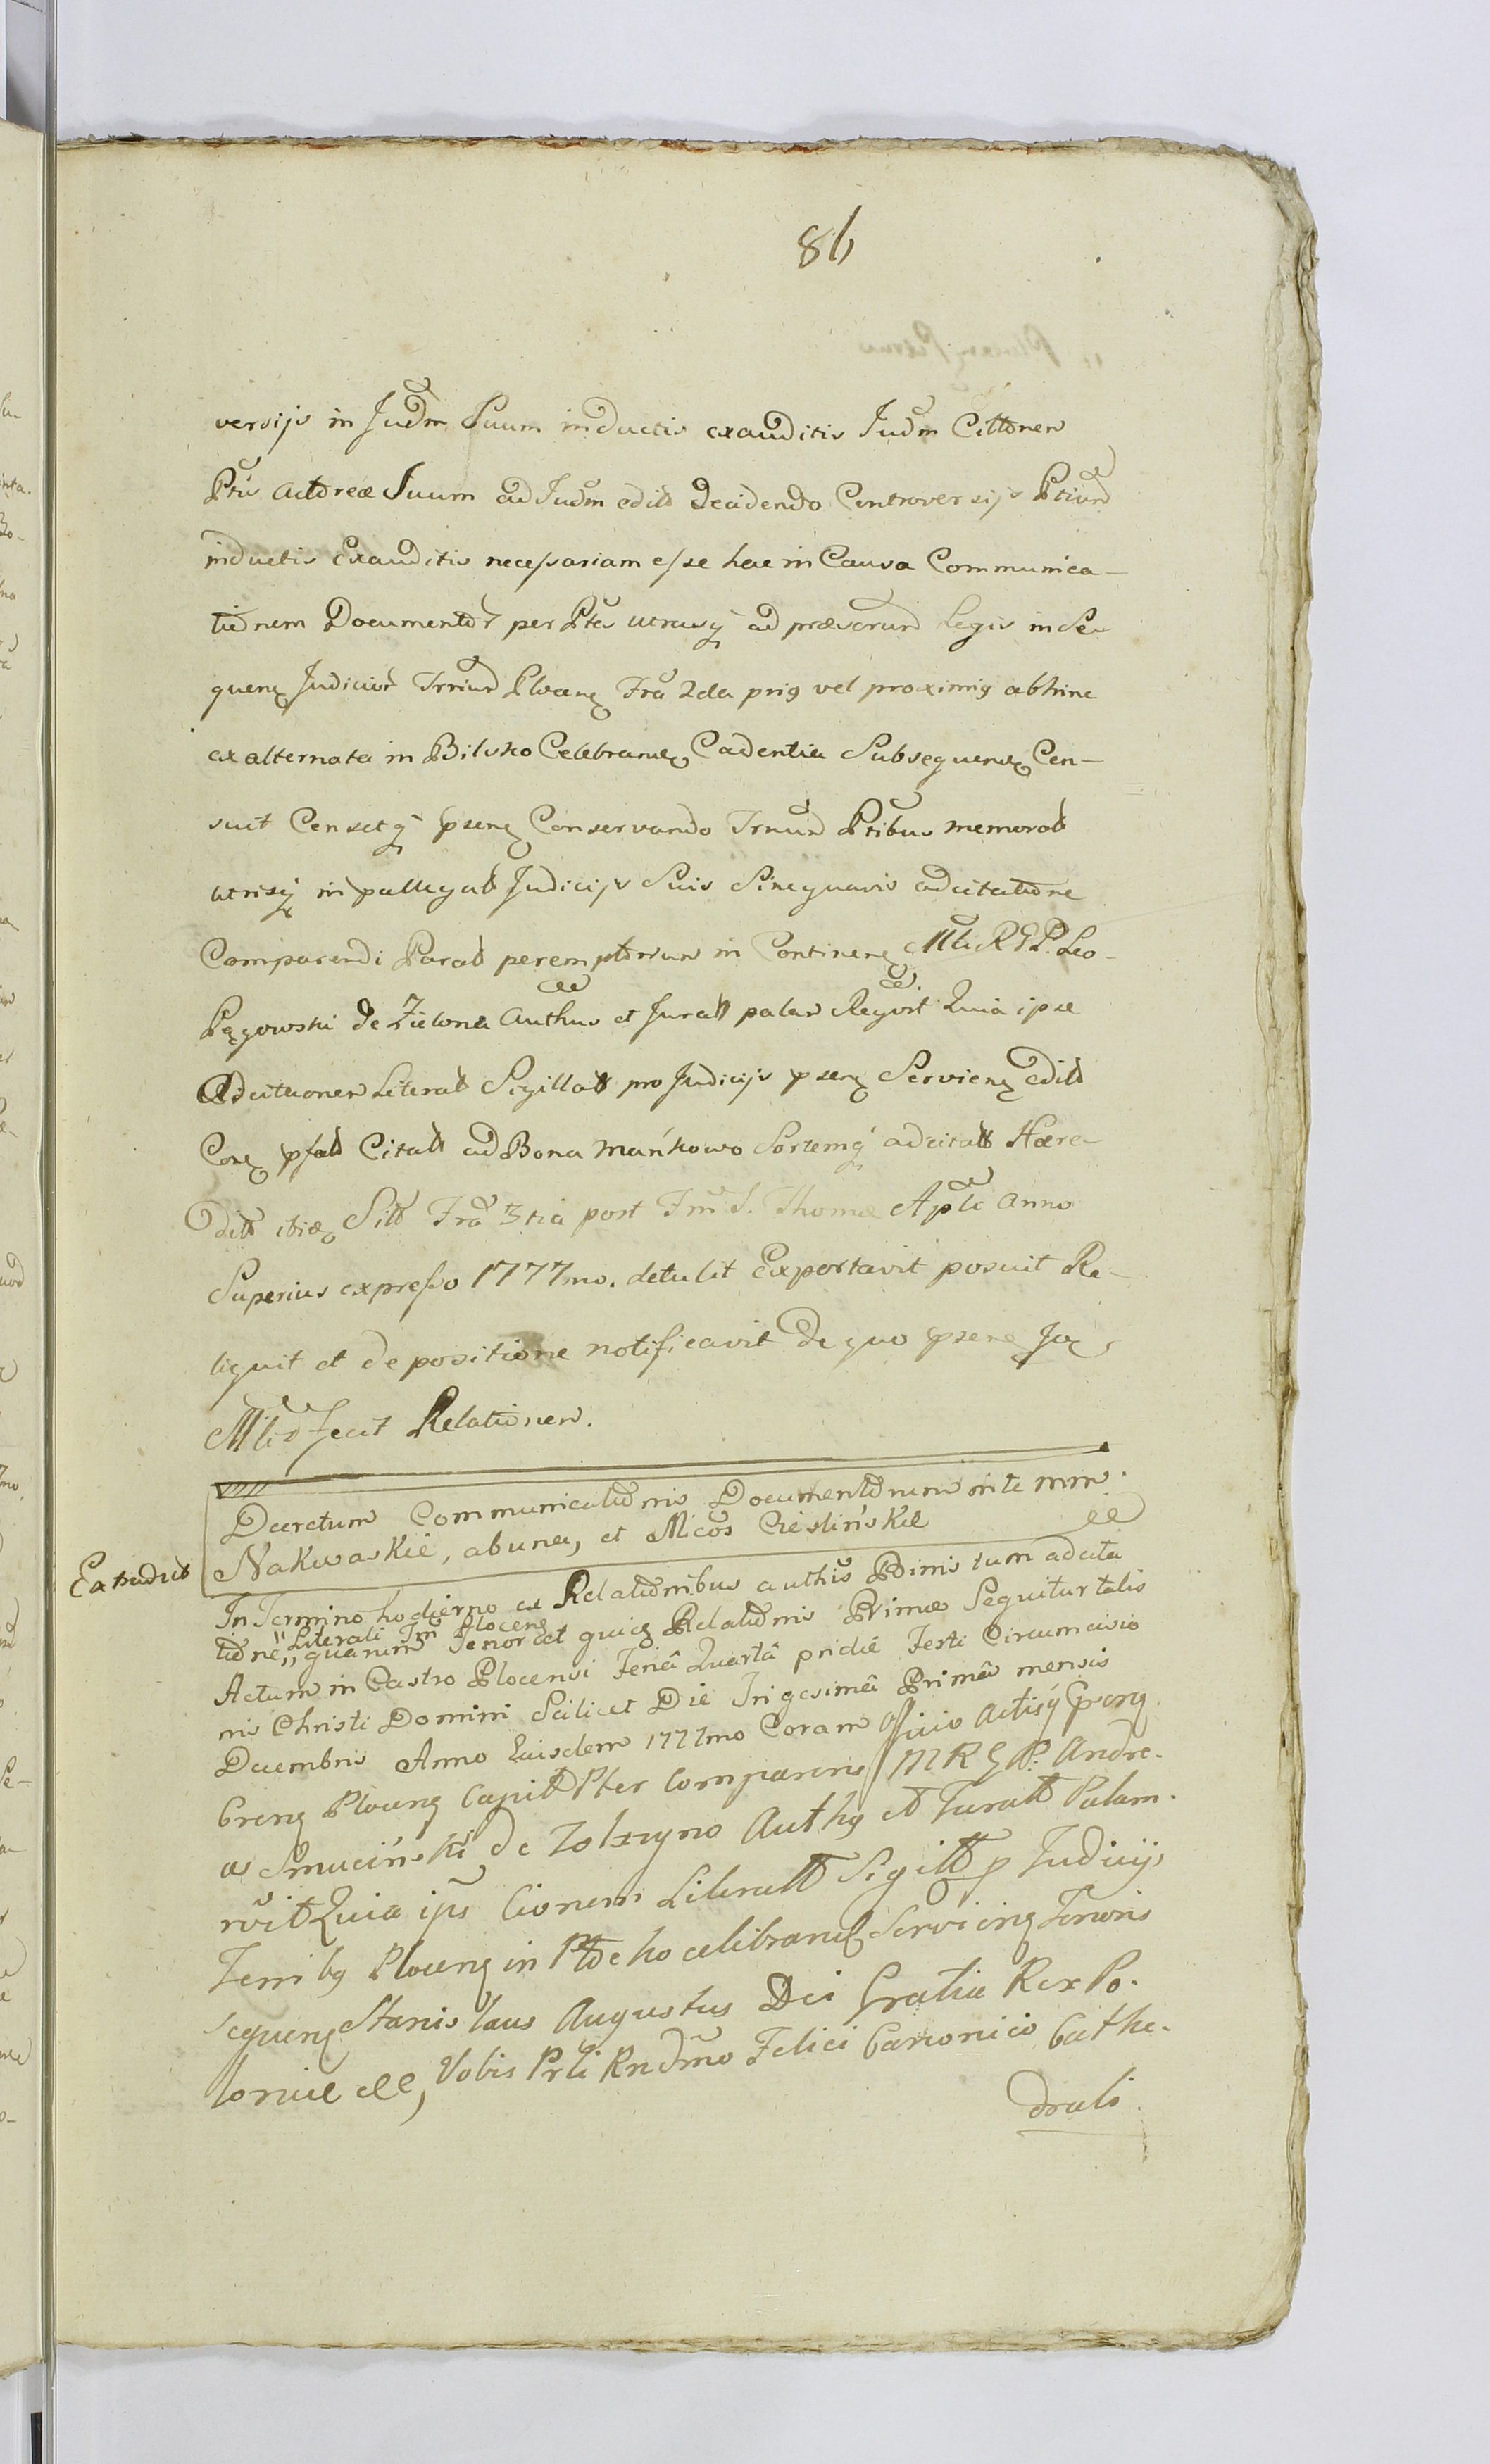 86
versijs in Judm Suum inductis exauditis Judm Citton̄em
Ptis Actoreæ Suum ad Judm edit decidendo Controversijs Ptium
inductis Exauditis necessariam esse hac in Causa Communica-
tionem Documentor per Ptes utrasq ad præscrum Legis in Se-
quenꝫ Judicior Trrium Plocenꝫ Fra 2da prig vel proximig abhinc
ex alternata in Bilsko Celebranꝫ Cadentia Subsequenꝫ Cen-
suit Censetq psenꝫ Conservando Trnum Ptibus memorat
utrisq in pallegat Judicijs Suis Sine quavis adcitatione
Comparendi Parat peremptorium in Continenꝫ Mli R G P. Leo-
Pągowski de Zielona Authus et Jurat palam Regvit Quia ipse
Adcitaonem Literat Sigillat pro Judicijs psenꝫ Servienꝫ edit
Conꝫ psat Citat ad Bona Mańkowo Sortemq adcitat Hære-
dit ibiꝫ Sit Fra 3tia post Fm S. Thomæ Apli Anno
Superius expresso 1777mo. detulit Exportavit posuit Re-
liquit et de positione notificavit De quo psens Joꝫ
Mlis fecit Relationem.
Decretum Communicationis Documentorum inte mm
Nakwaskie, ab una, et Micos Cieslińskie
Extradit
In Termino hodierno ex Relationibus authis Binis tum adcita
Literali Tm Plocenꝫ
tione " quarum Tenor et quiꝫ Relationis Primæ Sequitur talis
Actum in Castro Plocensi Feria Quartâ pridie Festi Circumcisio
nis Christi Domini Scilicet Die Trigesimâ Primâ mensis
Decembris Anno Eiusdem 1777mo Coram Officio Actisq psenꝫ
Crenꝫ Plocenꝫ Capit Pter Comparens MRGP. Andre-
as Smuciński de Zolszyno Authꝫ et Jurat Palam.
rvit Quia ips Cionem Literatt Sigitt p Judicijs
Terri bꝫ Plocenꝫ in Ptocko celebranꝫ Servienꝫ Tenoris
sequenꝫ Stanislaus Augustus Dei Gratia Rex Po-
loniæ ee, Vobis Prli Rndmo Felici Canonico Cathe-
drali.